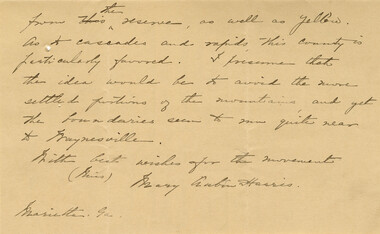 the
from this reserve, as well as yellow.
As to cascades and rapids, this county is
particularly favored. I presume that
the idea would be to avoid the more
settled portions of the mountains, and yet
the boundaries seem to me quite near
to Waynesville.
With best wishes for the movement
(Miss) Mary Harris.
Marietta, Ga.